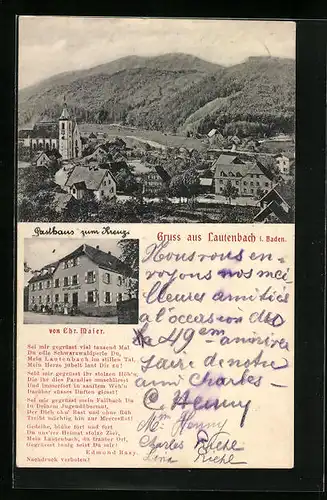 Gasthaus "zum Kreuz"
Gruss aus Lautenbach i. Baden.
von Chr. Maier.
Sei mir gegrüsst viel tausend Mal
Du edle Schwarzwaldperle Du,
Mein Lautenbach im stillen Tal,
Mein Herze jubelt laut Dir zu!
Seid mir gegrüsst ihr stolzen Höh'n
Die ihr dies Paradies umschliesst
Und immerfort in sanftem Weh'n
Darüber süssen Duften giesst!
Sei mir gegrüsst mein
In Deinem Jugendübermut,
Der Dich ohn' Rast und ohne Ruh
Treibt mächtig hin zur Meeresflut!
Gedeihe, blühe fort und fort
Du uns'rer Heimat stolze Zier,
Mein Lautenbach, du trauter Ort,
Mein Gruss innig seist Du mir!
Nachdruck verboten!
Nous vous en-
voyons nos mei
lleures amitiés
à l'occasion du
49em anniver
saire de notre
ami Charles-
C. Henny
Mme Henny
Charles Riehl
Lina Riehl